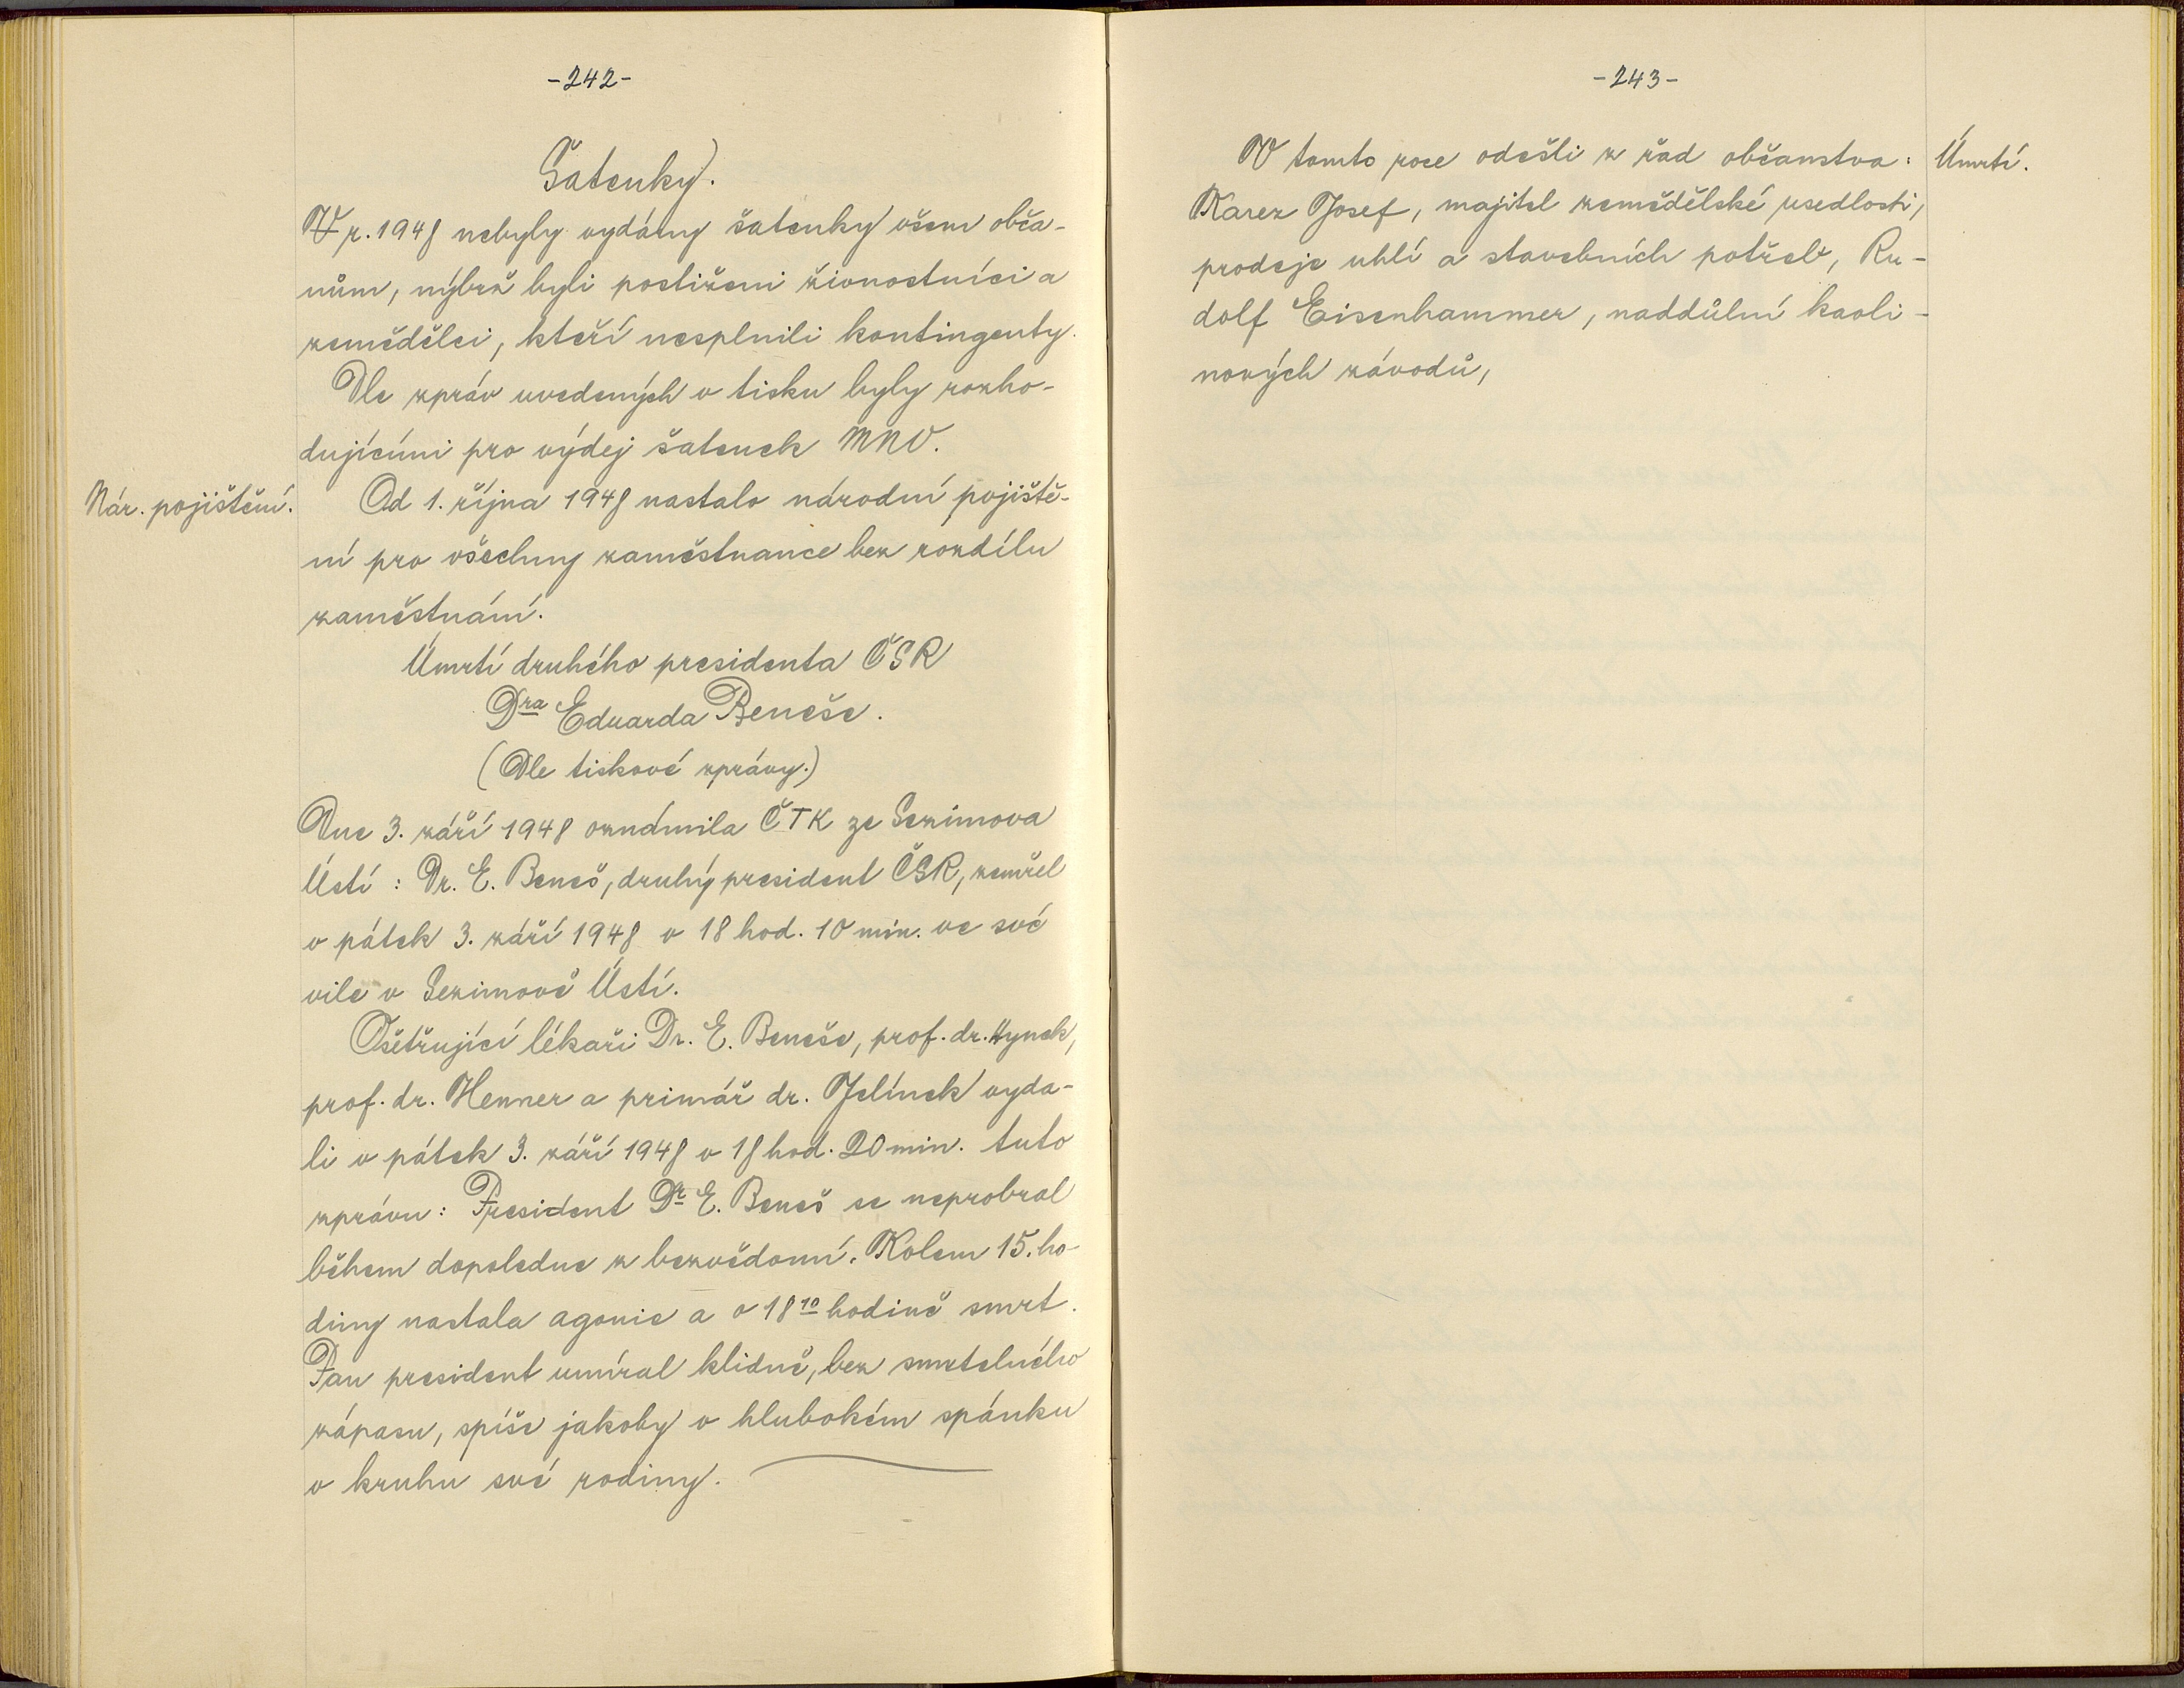 -242-
Šatenky.
V r. 1948 nebyly vydány šatenky všem obča-
nům, nýbrž byli postiženi živnostníci a
zemědělci, kteří nesplnili kontingenty.
Dle zpráv uvedených v tisku byly rozho-
dujícími pro výdej šatenek MNV.
Nár. pojištění.
Od 1. října 1948 nastalo národní pojiště-
ní pro všechny zaměstnance bez rozdílu
zaměstnání.
Úmrtí druhého presidenta ČSR
Dra Eduarda Beneše.
(Dle tiskové zprávy.)
Dne 3. září 1948 oznámila ČTK ze Sezimova
Ústí: Dr. E. Beneš, druhý president ČSR, zemřel
v pátek 3. září 1948 v 18 hod. 10 min. ve své
vile v Sezimově Ústí.
Ošetřující lékaři Dr. E. Beneše, prof. dr. Hynek,
prof. dr. Henner a primář dr. Jelínek vyda-
li v pátek 3. září 1948 v 18 hod. 20 min. tuto
zprávu: President Dr E. Beneš se neprobral
během dopoledne z bezvědomí. Kolem 15. ho-
diny nastala agonie a v 18 10 hodině smrt.
Pan president umíral klidně, bez smrtelného
zápasu, spíše jakoby v hlubokém spánku
v kruhu své rodiny.
-243-
V tomto roce odešli z řad občanstva:
Úmrtí.
Karez Josef, majitel zemědělské usedlosti,
prodeje uhlí a stavebních potřeb, Ru-
dolf Eisenhammer, naddůlní kaoli-
nových závodů,